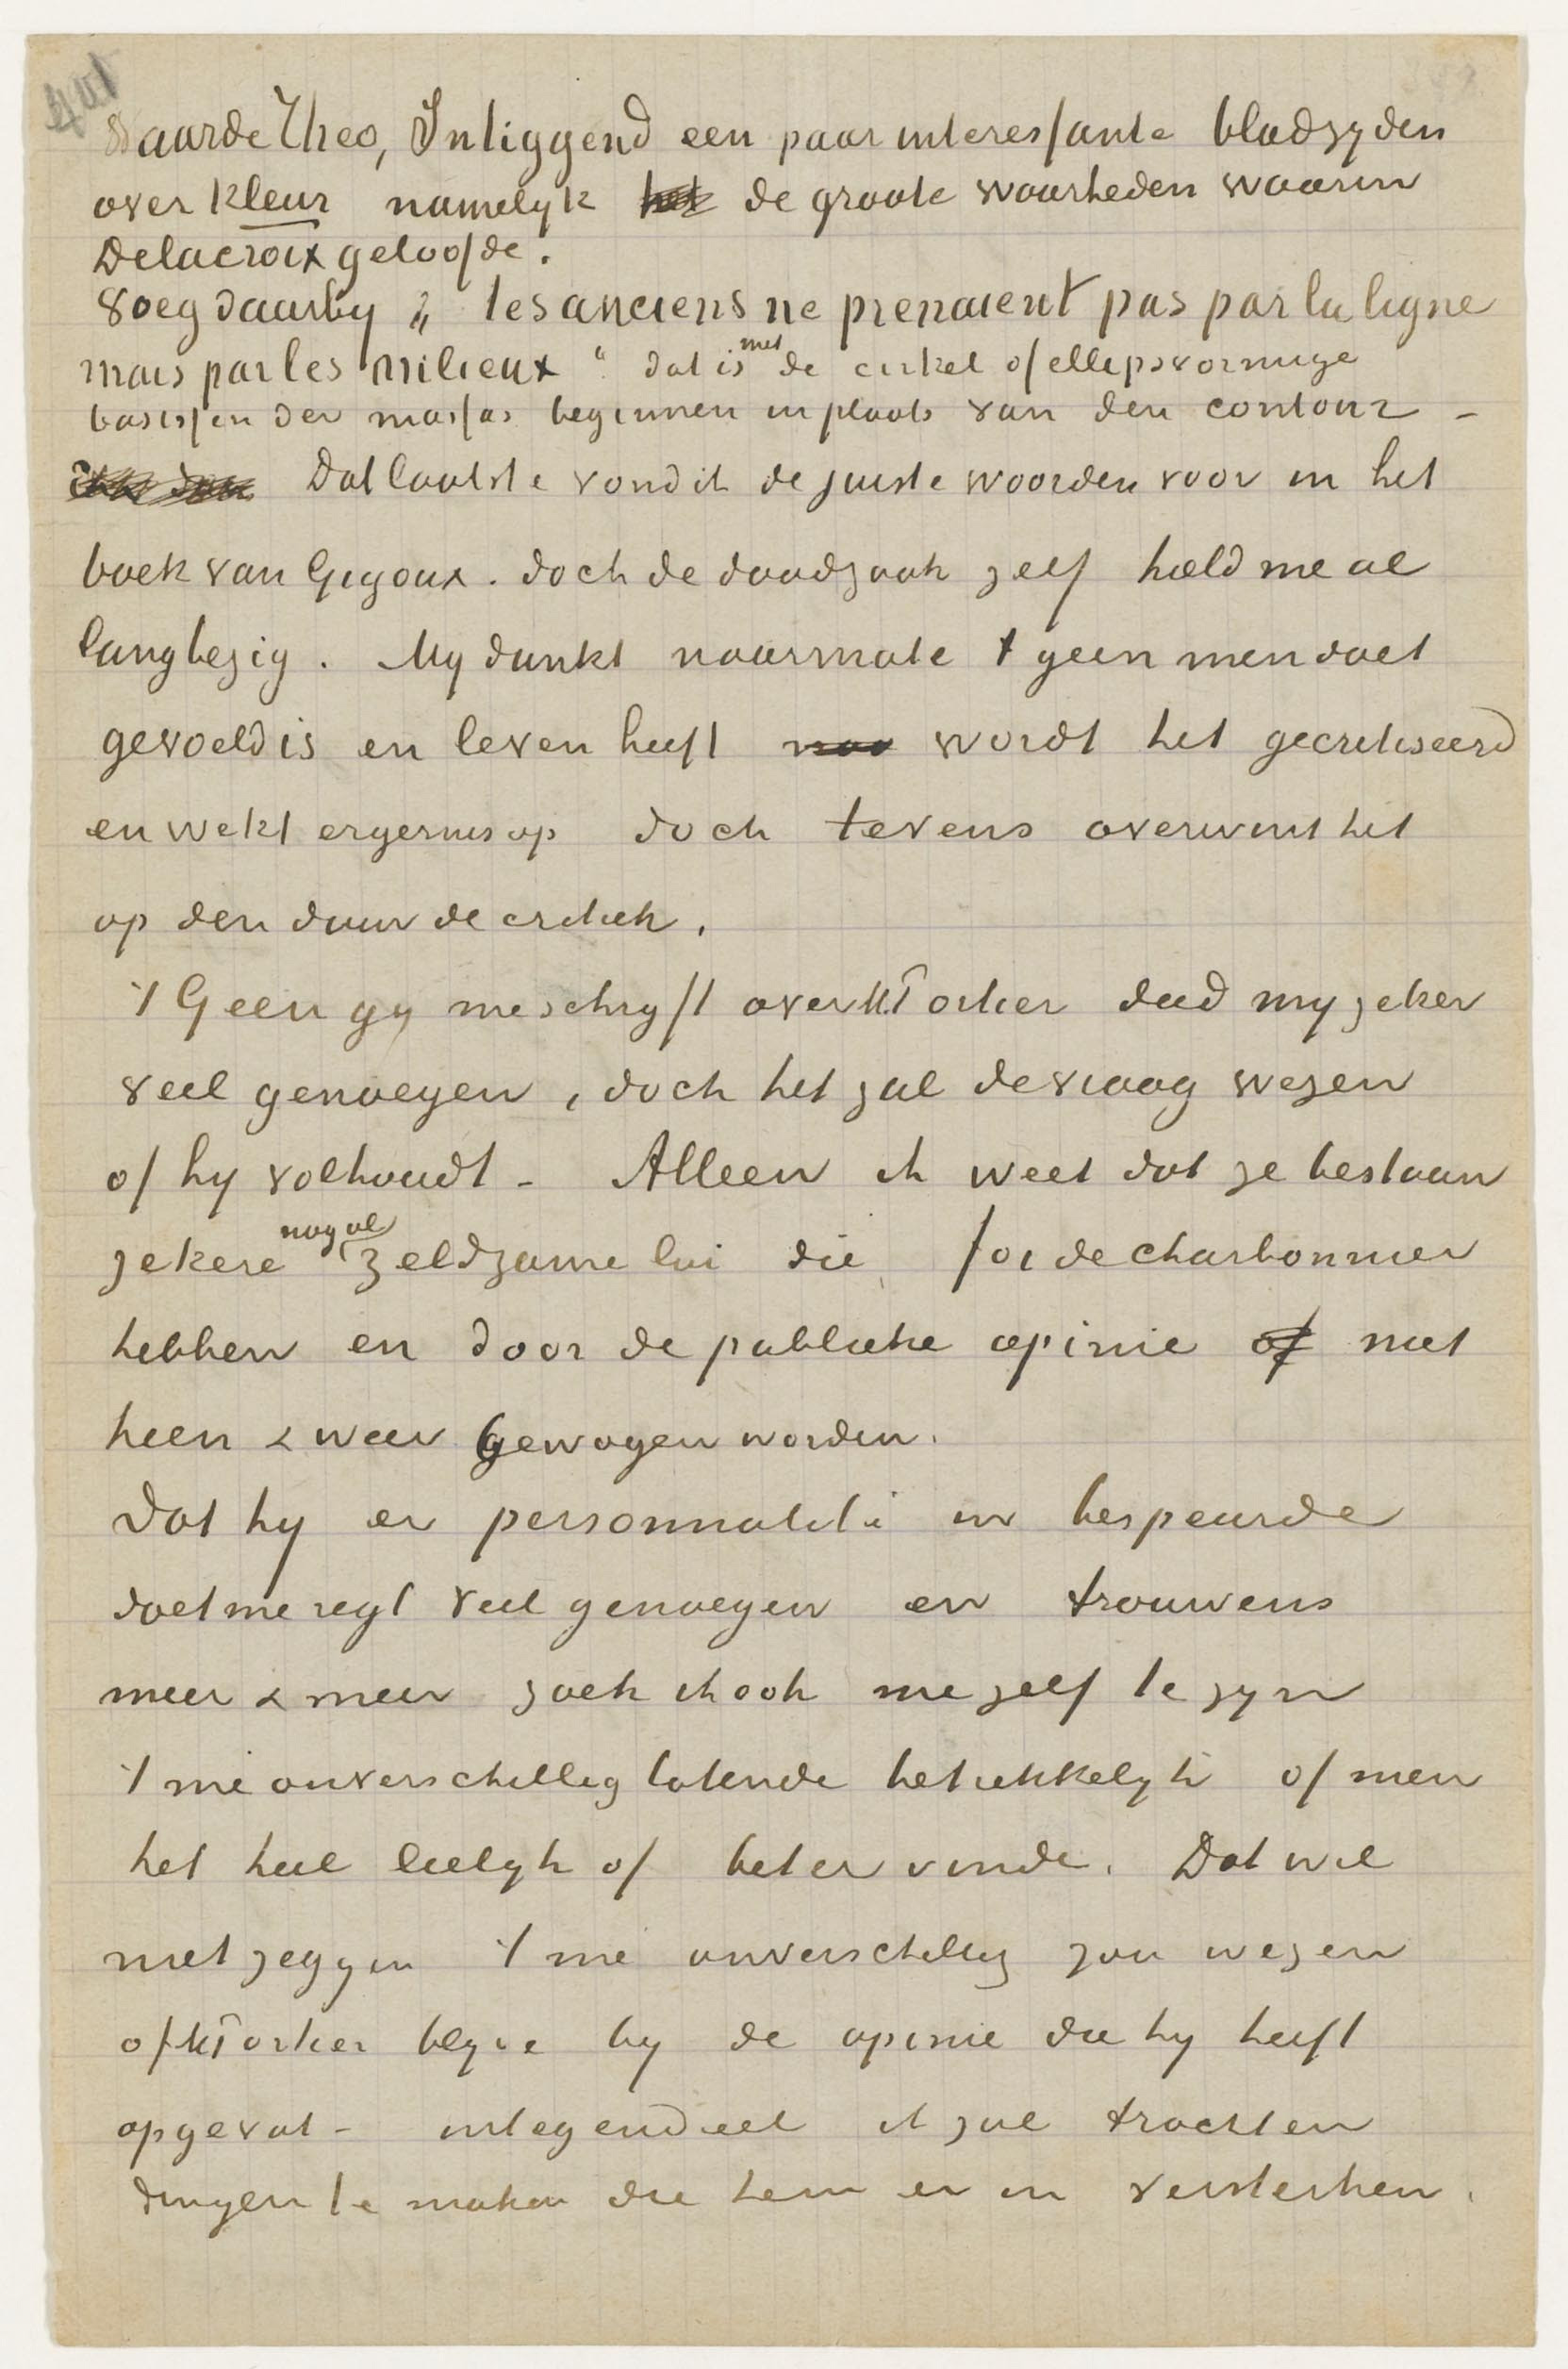 401
Waarde Theo, Inliggend een paar interessante bladzyden
over kleur namelyk het de groote waarheden waarin
Delacroix geloofde.
Voeg daarby „les anciens ne prenaient pas par la ligne
mais par les milieux“ dat is met de cirkel of ellipsvormige
basissen der massas beginnen in plaats van den contour –
Dat laatste vond ik de juiste woorden voor in het
boek van Gigoux. doch de daadzaak zelf hield me al
lang bezig. My dunkt naarmate t geen men doet
gevoeld is en leven heeft naa wordt het gecritiseerd
en wekt ergernis op doch tevens overwint het
op den duur de critiek.
't Geen gy me schryft over Mr Portier deed my zeker
veel genoegen, doch het zal de vraag wezen
of hy volhoudt – Alleen ik weet dat ze bestaan
zekere nog al zeldzame lui die foi de charbonnier
hebben en door de publieke opinie of niet
heen & weer gewogen worden.
Dat hy er personnalité in bespeurde
doet me regt veel genoegen en trouwens
meer & meer zoek ik ook me zelf te zyn
't me onverschillig latende betrekkelyk of men
het heel leelyk of beter vinde. Dat wil
niet zeggen 't me onverschillig zou wezen
of Mr Portier blyve by de opinie die hy heeft
opgevat – integendeel ik zal trachten
dingen te maken die hem er in versterken.